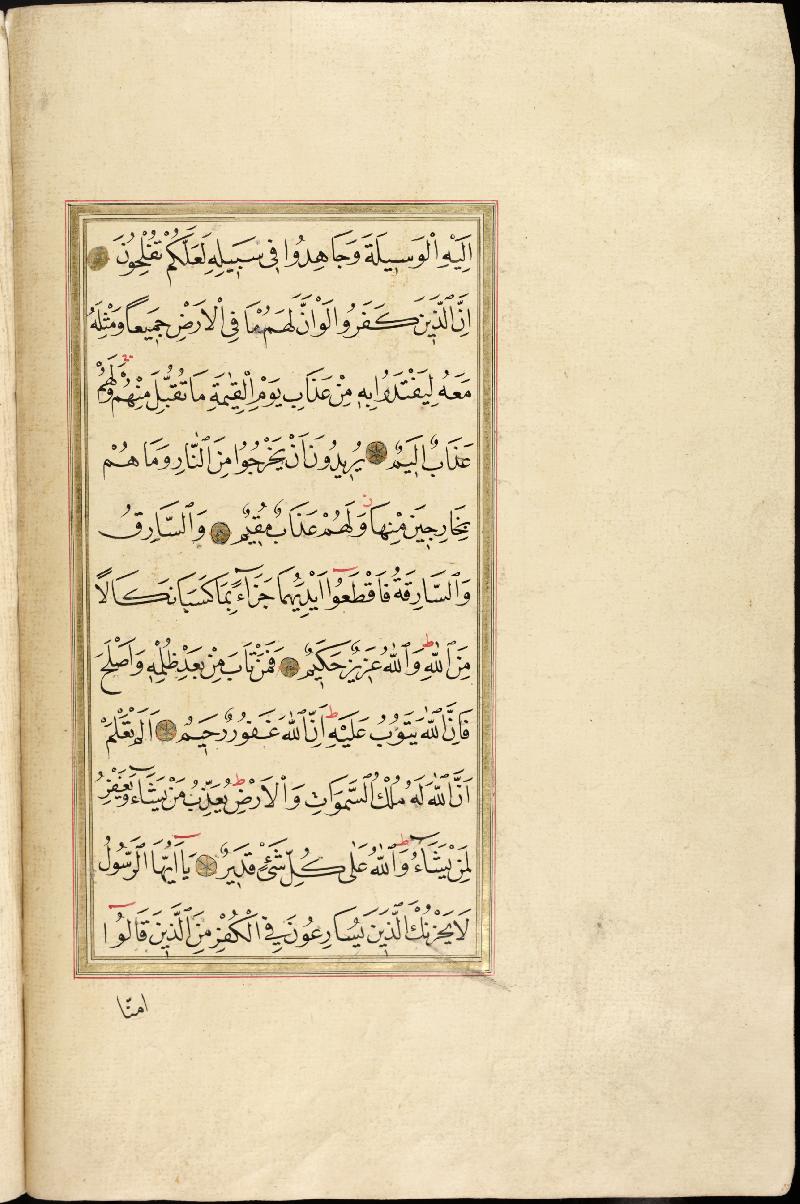 اِلَيْهِ الْوَسِيلَةَ وَجَاهِدُوا فِى سَبِيلِهِ لَعَلَّكُمْ تُفْلِحُونَ
اِنَّ الَّذِينَ كَفَرُوا لَوْ اَنَّ لَهُمْ مَا فِى الْاَرْضِ جَمِيعًا وَمِثْلَهُ
مَعَهُ لِيَفْتَدُوا بِهِ مِنْ عَذَابِ يَوْمِ الْقِيٰمَةِ مَا تُقُبِّلَ مِنْهُمْ وَلَهُمْ
عَذَابٌ اَلِيمٌ يُرِيدُونَ اَنْ يَخْرُجُوا مِنَ النَّارِ وَمَا هُمْ
بِخَارِجِينَ مِنْهَا وَلَهُمْ عَذَابٌ مُقِيمٌ وَالسَّارِقُ
وَالسَّارِقَةُ فَاقْطَعُوا اَيْدِيَهُمَا جَزَاءً بِمَا كَسَبَا نَكَالًا
مِنَ اللّٰهِ وَاللّٰهُ عَزِيزٌ حَكِيمٌ فَمَنْ تَابَ مِنْ بَعْدِ ظُلْمِهِ وَاَصْلَحَ
فَاِنَّ اللّٰهَ يَتُوبُ عَلَيْهِ اِنَّ اللّٰهَ غَفُورٌ رَحِيمٌ اَلَمْ تَعْلَمْ
اَنَّ اللّٰهَ لَهُ مُلْكُ السَّمٰوَاتِ وَالْاَرْضِ يُعَذِّبُ مَنْ يَشَاءُ وَيَغْفِرُ
لِمَنْ يَشَاءُ وَاللّٰهُ عَلٰى كُلِّ شَىْءٍ قَدِيرٌ يَا اَيُّهَا الرَّسُولُ
لَا يَحْزُنْكَ الَّذِينَ يُسَارِعُونَ فِى الْكُفْرِ مِنَ الَّذِينَ قَالُوا
امنّا